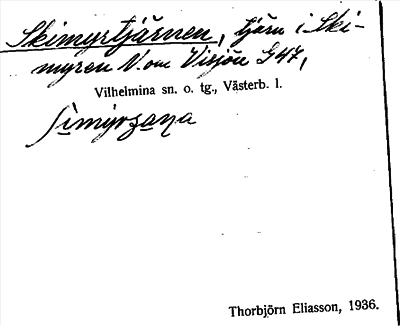 Skimyrtjärnen, tjärn i Ski-
myren N. om Visjön G47,
Vilhelmina sn. o. tg., Västerb. l.
Thorbjörn Eliasson, 1936.